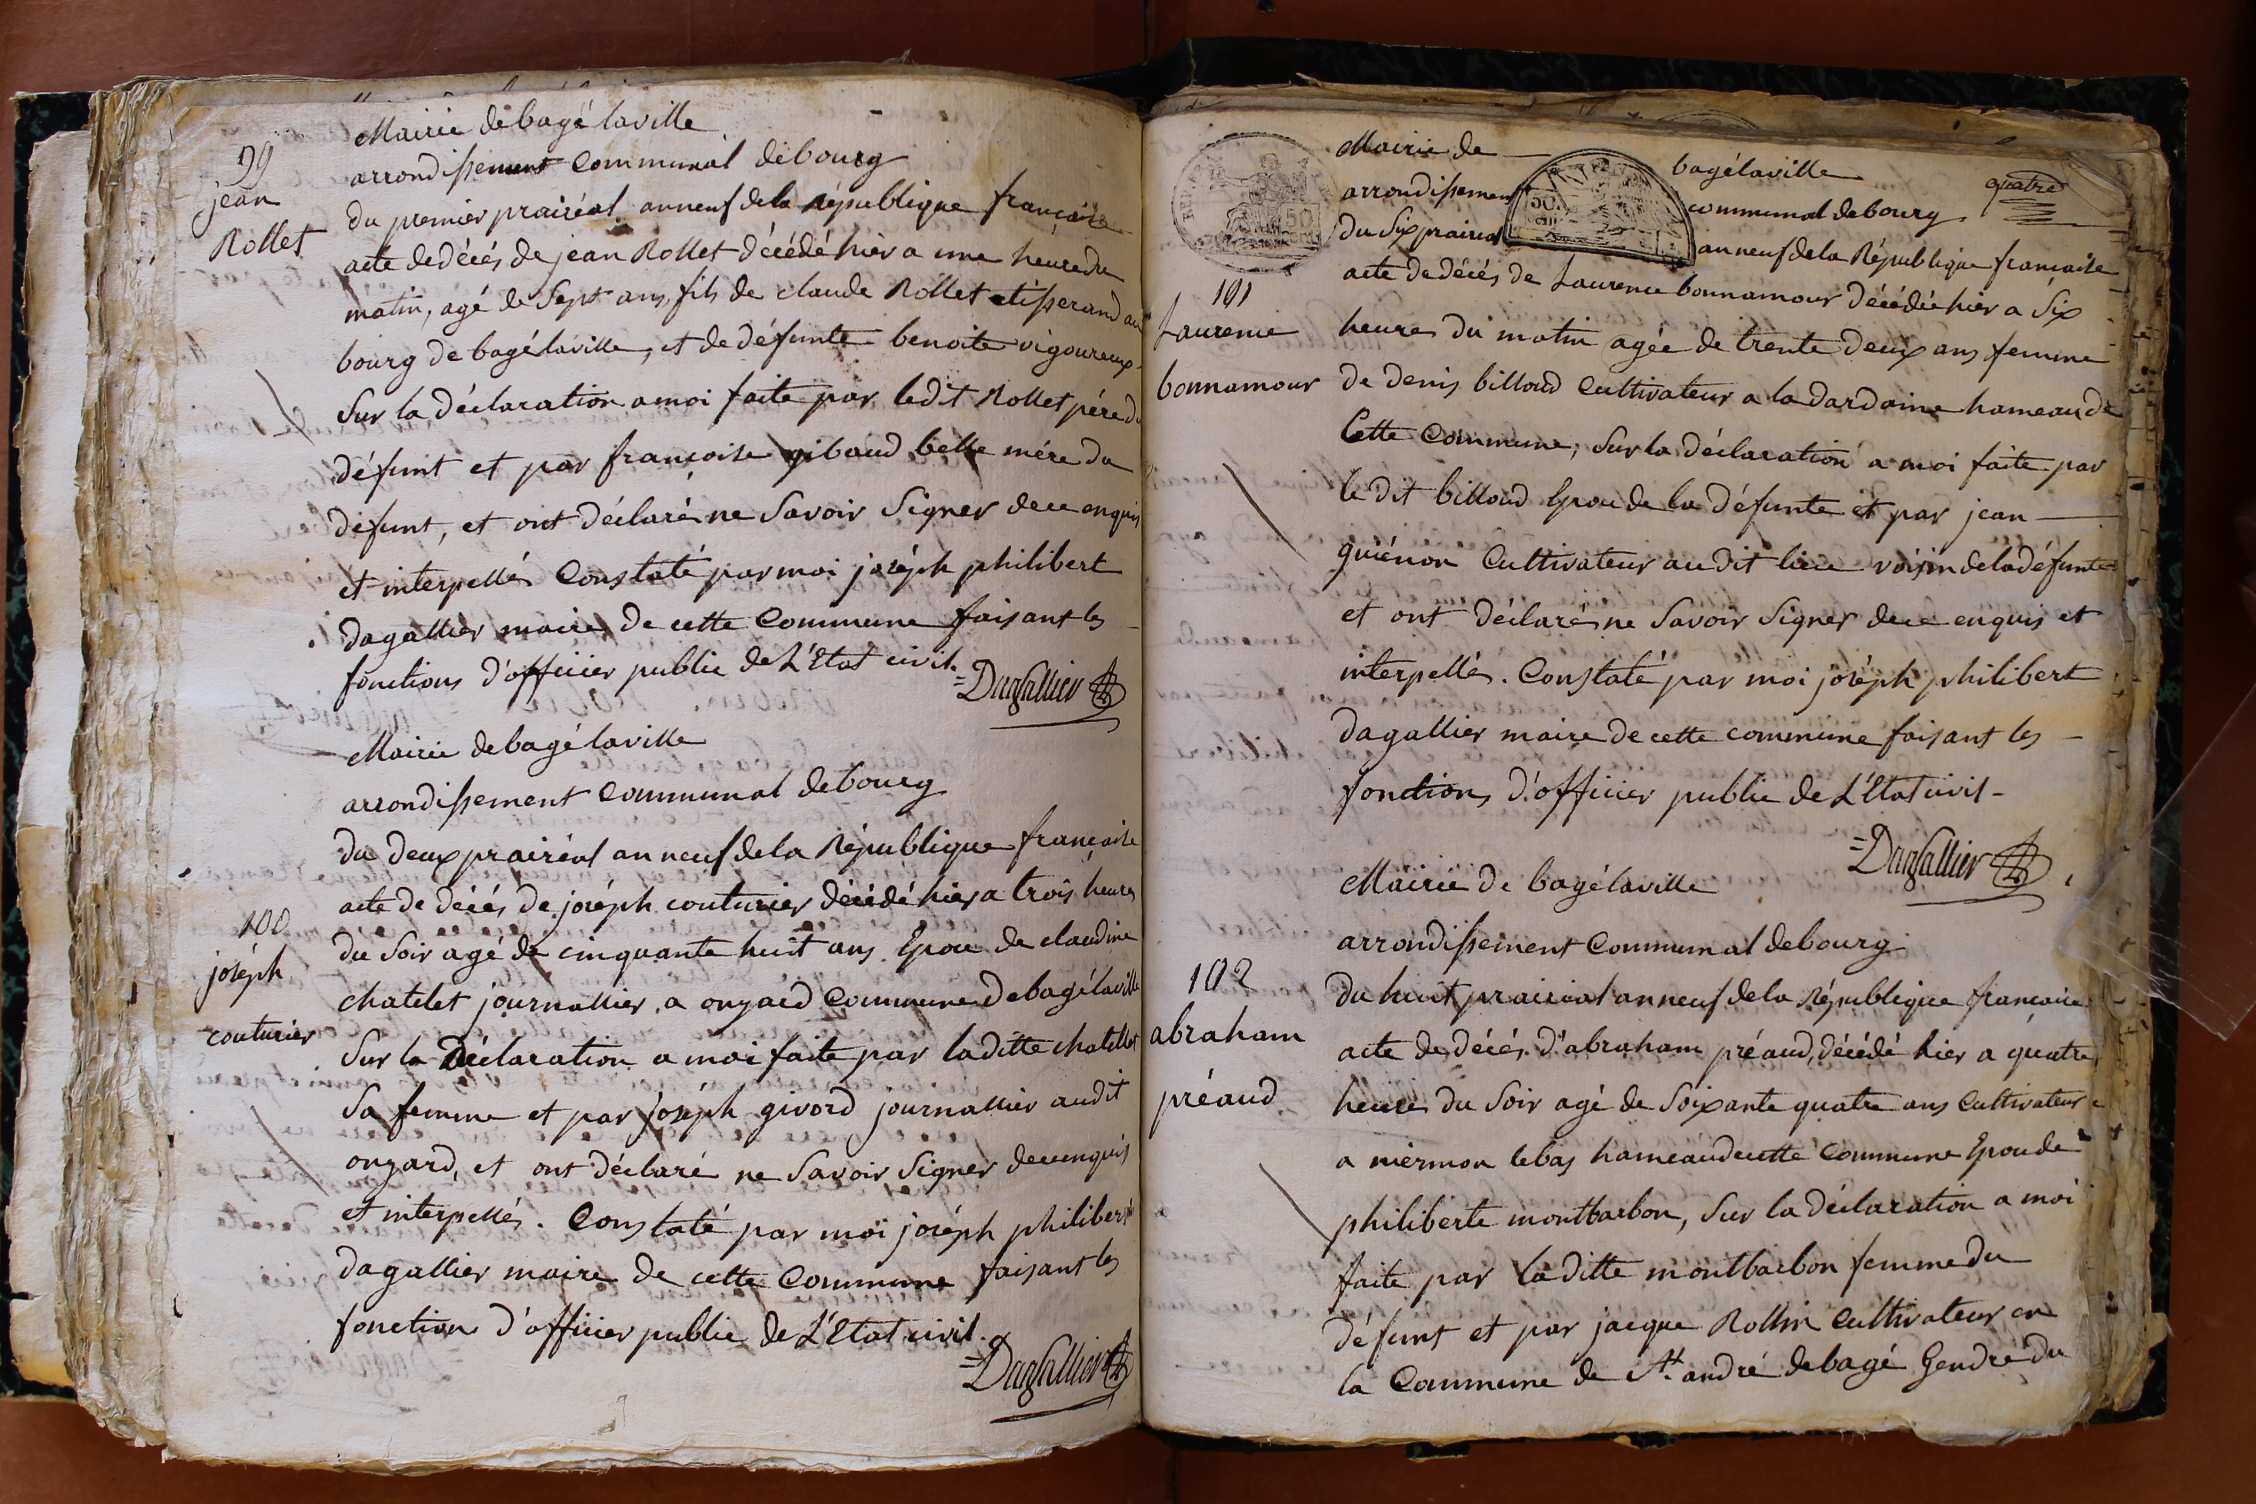 99
jean
Rollet
Mairie de bagé laville
arrondissement communal debourg
du premier prairéal an neuf dela République françoise
acte dedécés de jean Rollet décédé hier a une heure du
matin, agé de Sept ans, fils de claude Rollet tisserand au
bourg de bagélaville, et de défunte benoite vigoureux
Sur la déclaration a moi faite par ledit Rollet pére du
défunt et par françoise gibaud belle mére du
défunt, et ont déclaré ne Savoir Signer de ce enquis
et interpellés Constaté par moi joséph philibert
dagallier maire de cette Commune faisant les
fonctions d'officier public de L'Etat civil.
=Dagallier
100
joséph
couturier
Mairie debagé laville
arrondissement communal debourg
du deux prairéal an neuf dela République françoise
acte de décés de joséph couturier décédé hier a trois heures
du Soir agé de cinquante huit ans. Epou de claudine
chatelet journallier a onzard Commune debagélaville
Sur la déclaration a moi faite par laditte chatellet
Sa femme et par joséph givord journallier audit
onzard, et ont déclaré ne Savoir Signer de ce enquis
et interpellés. Constaté par moi joséph philibert
dagallier maire de cette Commune faisant les
fonctions d'officier public de L'Etat civil.
=Dagallier
quatre
Mairie de bagélaville
arrondissement communal debourg
du Six prairial an neuf dela République francaise
50.
101
Laurence
bonnamour
acte de décés de Laurence bonnamour décédée hier a Six
heures du matin agée de trente deux ans femme
de denis billoud Cultivateur a la dardaine hameau de
Cette Commune, Sur la déclaration a moi faite par
le dit billoud Epou de la défunte et par jean
guénon Cultivateur au dit lieu voisin dela défunte
et ont déclaré ne Savoir Signer de ce enquis et
interpellés. Constaté par moi joséph philibert
dagallier maire de cette commune faisant les
fonctions d'officier public de L'Etat civil-
=Dagallier
102
abraham
préaud
Mairie de bagélaville
arrondissement Communal debourg
du huit prairial an neuf dela République francaise
acte de décés d'abraham préaud, décédé hier a quatre
heures du Soir agé de Soixante quatre ans Cultivateur
a mermon lebas hameau decette Commune Epou de
philiberte montbarbon, Sur la déclaration a moi
faite par laditte montbarbon femme du
défunt et par jacque Rollin Cultivateur en
la Commune de St. andré debagé Gendre du